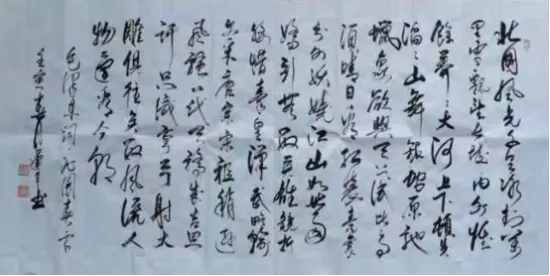 北国風光千里冰封万
里雪飘望长城内外惟
餘莽莽大河上下顿失
滔滔山舞银蛇原驰
蠟象欲与天公试比高
须晴日看红装素裹
分外妖娆江山如此多
娇引無数英雄競折
腰惜秦皇漢武略输
文采唐宗宋祖稍逊
風骚一代天骄成吉思
汗只識弯弓射大
雕俱往矣数風流人
物还看今朝
毛泽东词沁园春雪
壬寅春月
书